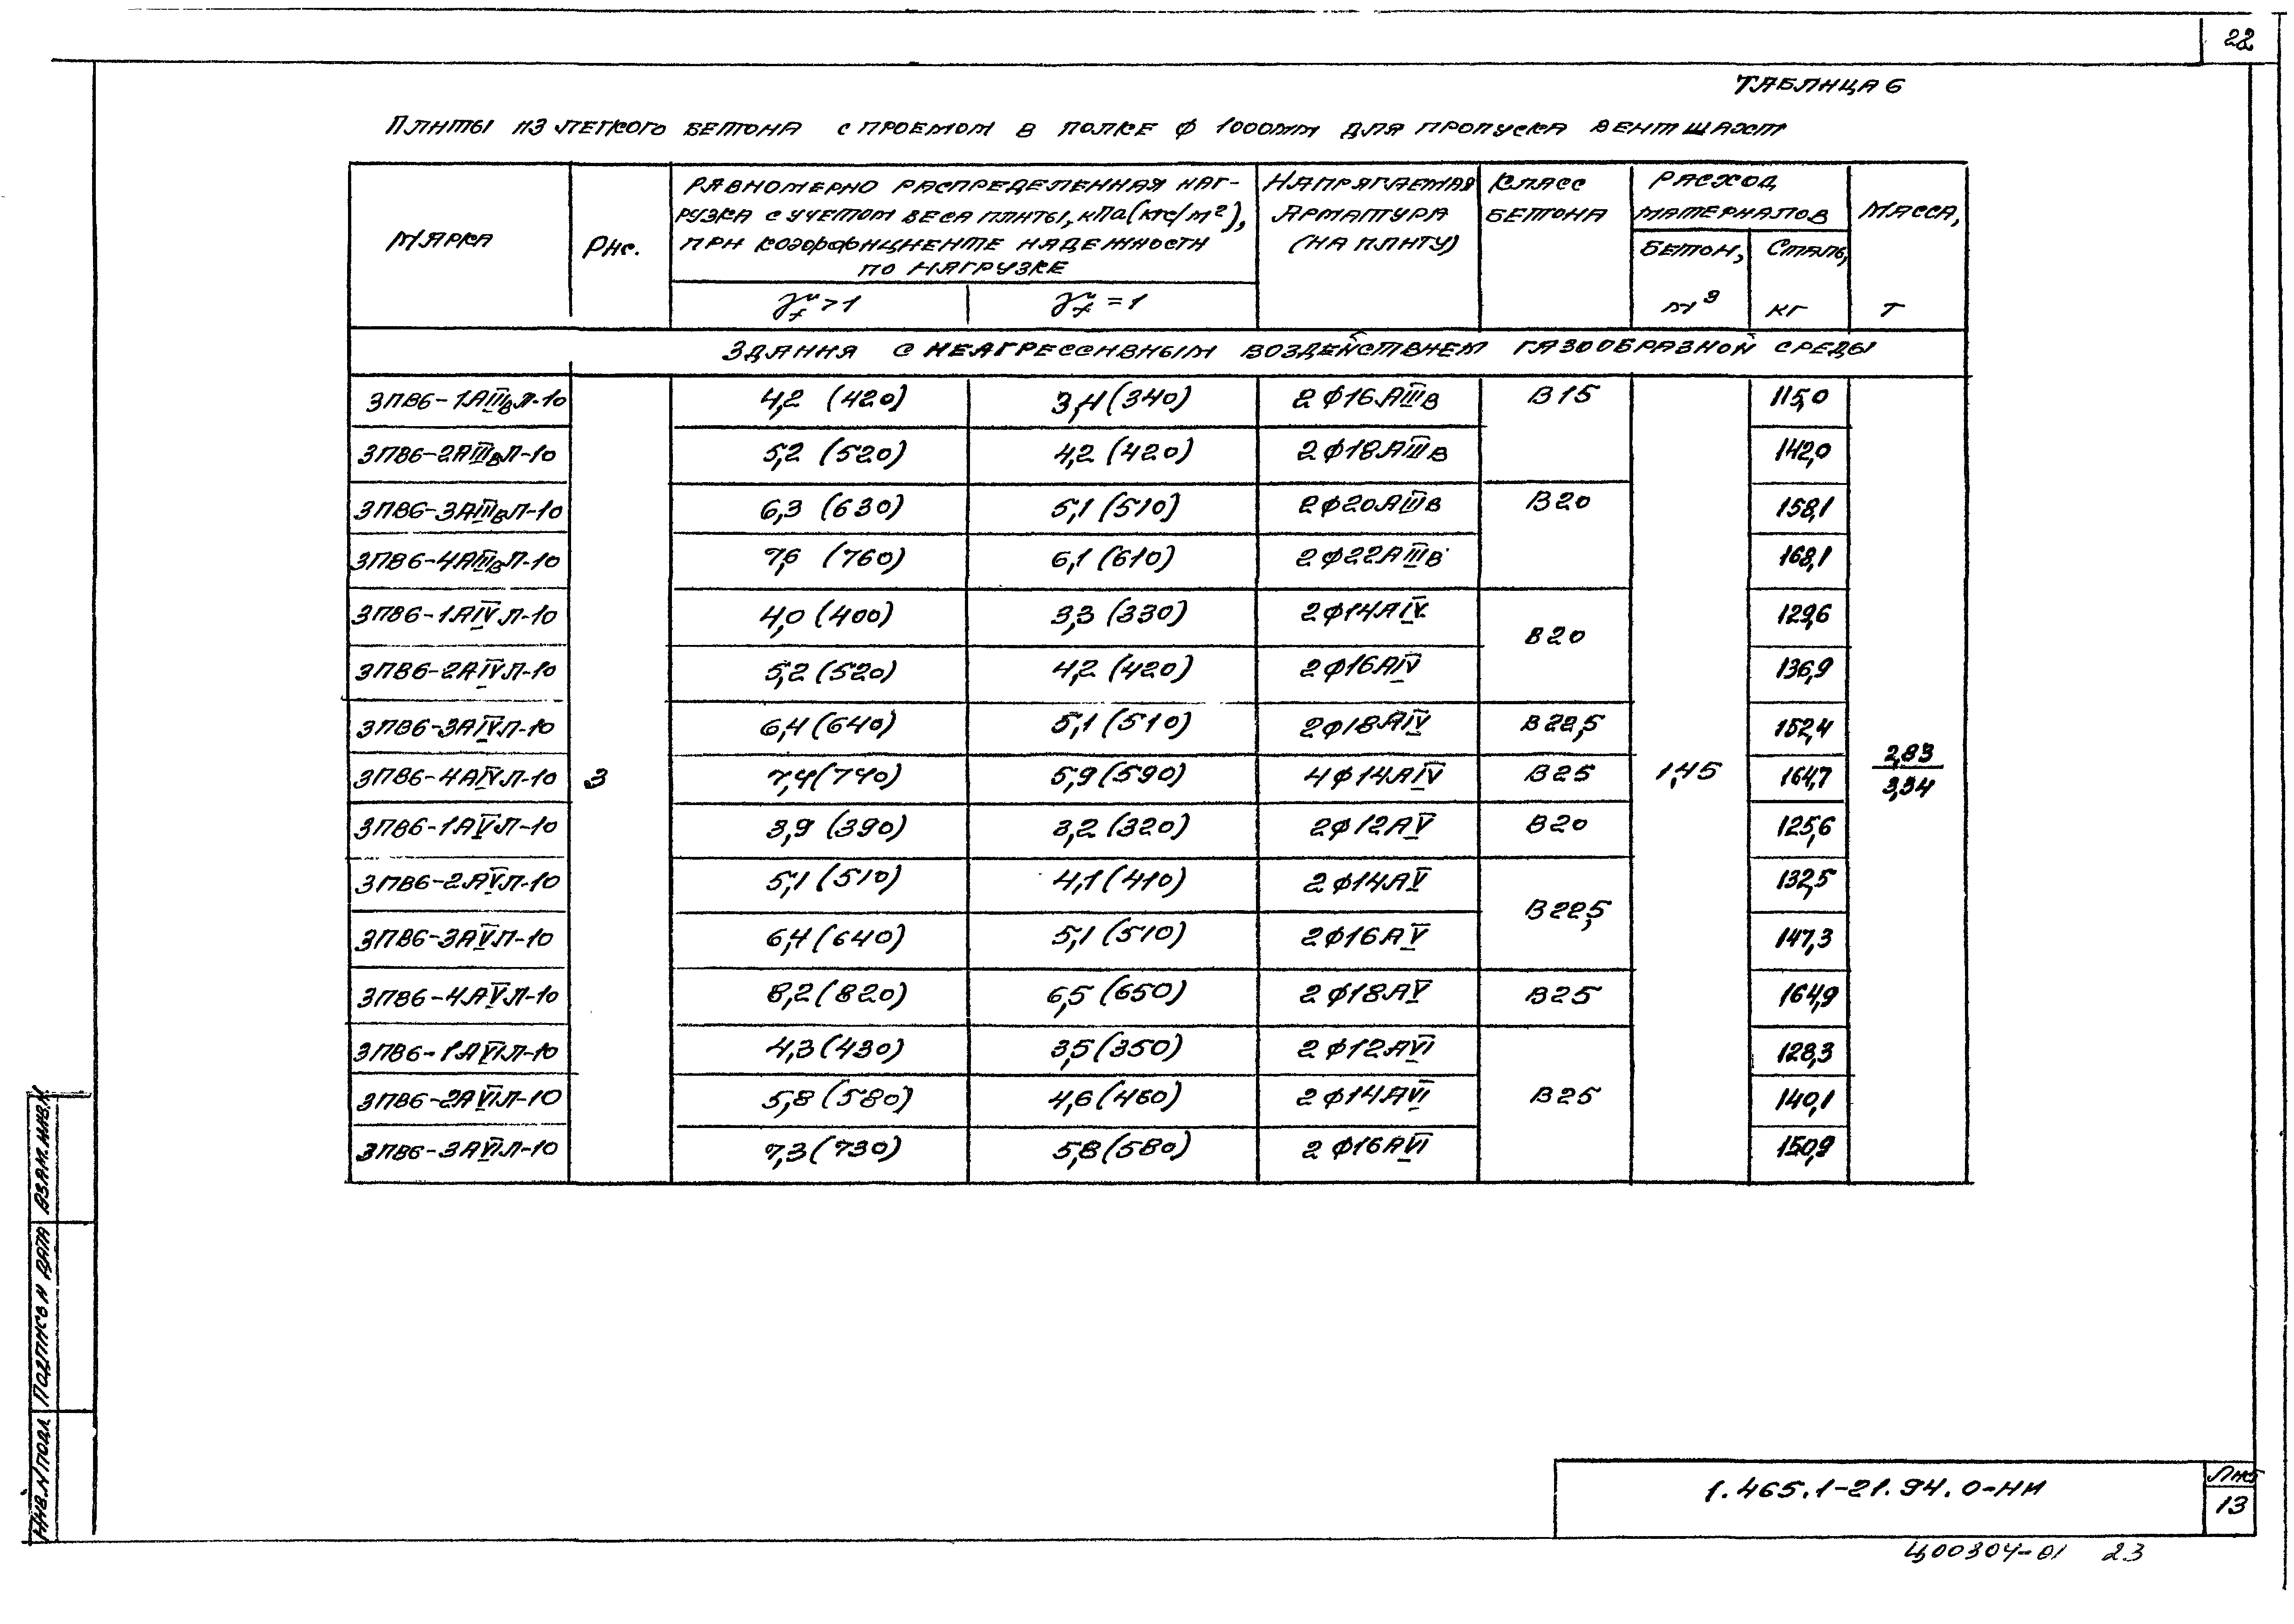 22
Таблица 6
Плиты из легкого бетона с проемом в полке ф 1000мм для пропуска вентшахт
Марка
Рис.
Равномерно распределенная наг-
рузка с учетом веса плиты, кПа (кгс/м²),
при коэффициенте надежности
по нагрузке
γf^н >1
γf^н =1
Напрягаемая
арматура
(на плиту)
Класс
бетона
Расход
материалов
Бетон,
м³
Сталь,
кг
Масса,
т
Здания с неагрессивным воздействием газообразной среды
3ПВ6-1АIIIвЛ-10 4,2 (420) 3,4 (340) 2ф16АIIIв В15 115,0
3ПВ6-2АIIIвЛ-10 5,2 (520) 4,2 (420) 2ф18АIIIв 142,0
3ПВ6-3АIIIвЛ-10 6,3 (630) 5,1 (510) 2ф20АIIIв В20 158,1
3ПВ6-4АIIIвЛ-10 7,6 (760) 6,1 (610) 2ф22АIIIв 168,1
3ПВ6-1АIVЛ-10 4,0 (400) 3,3 (330) 2ф14АIV В20 129,6
3ПВ6-2АIVЛ-10 5,2 (520) 4,2 (420) 2ф16АIV 136,9
3ПВ6-3АIVЛ-10 6,4 (640) 5,1 (510) 2ф18АIV В22,5 152,4
3ПВ6-4АIVЛ-10 3 7,4 (740) 5,9 (590) 4ф14АIV В25 1,45 164,7 2,83/3,34
3ПВ6-1АVЛ-10 3,9 (390) 3,2 (320) 2ф12АV В20 125,6
3ПВ6-2АVЛ-10 5,1 (510) 4,1 (410) 2ф14АV В22,5 132,5
3ПВ6-3АVЛ-10 6,4 (640) 5,1 (510) 2ф16АV 147,3
3ПВ6-4АVЛ-10 8,2 (820) 6,5 (650) 2ф18АV В25 164,9
3ПВ6-1АVIЛ-10 4,3 (430) 3,5 (350) 2ф12АVI 128,3
3ПВ6-2АVIЛ-10 5,8 (580) 4,6 (460) 2ф14АVI В25 140,1
3ПВ6-3АVIЛ-10 7,3 (730) 5,8 (580) 2ф16АVI 150,9
Инв.N подл. Подпись и дата Взам.инв.N
1.465.1-21.94.0-НИ
Лист
13
Ц00304-01 23